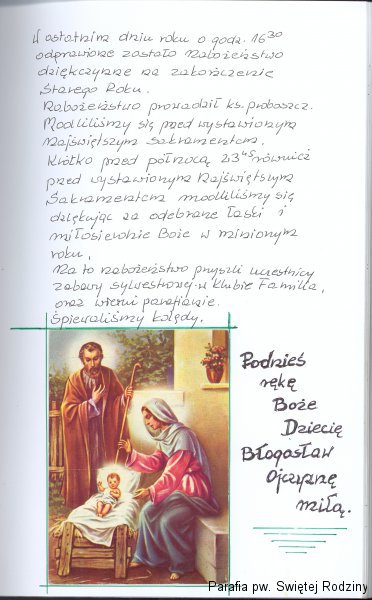 W ostatnim dniu roku o godz. 16³⁰
odprawione zostało Nabożeństwo
dziękczynne na zakończenie
Starego Roku.
Nabożeństwo prowadził ks. proboszcz.
Modliliśmy się przed wystawionym
Najświętszym Sakramentem.
Krótko przed północą 23⁴⁵ również
przed wystawionym Najświętszym
Sakramentem modliliśmy się
dziękując za odebrane łaski i
miłosierdzie Boże w minionym
roku.
Na to nabożeństwo przyszli uczestnicy
zabawy sylwestrowej w Klubie Familia,
oraz wierni parafianie.
Śpiewaliśmy kolędy.
Podnieś
rękę
Boże
Dziecię
Błogosław
Ojczyznę
miłą.
Parafia pw. Świętej Rodziny